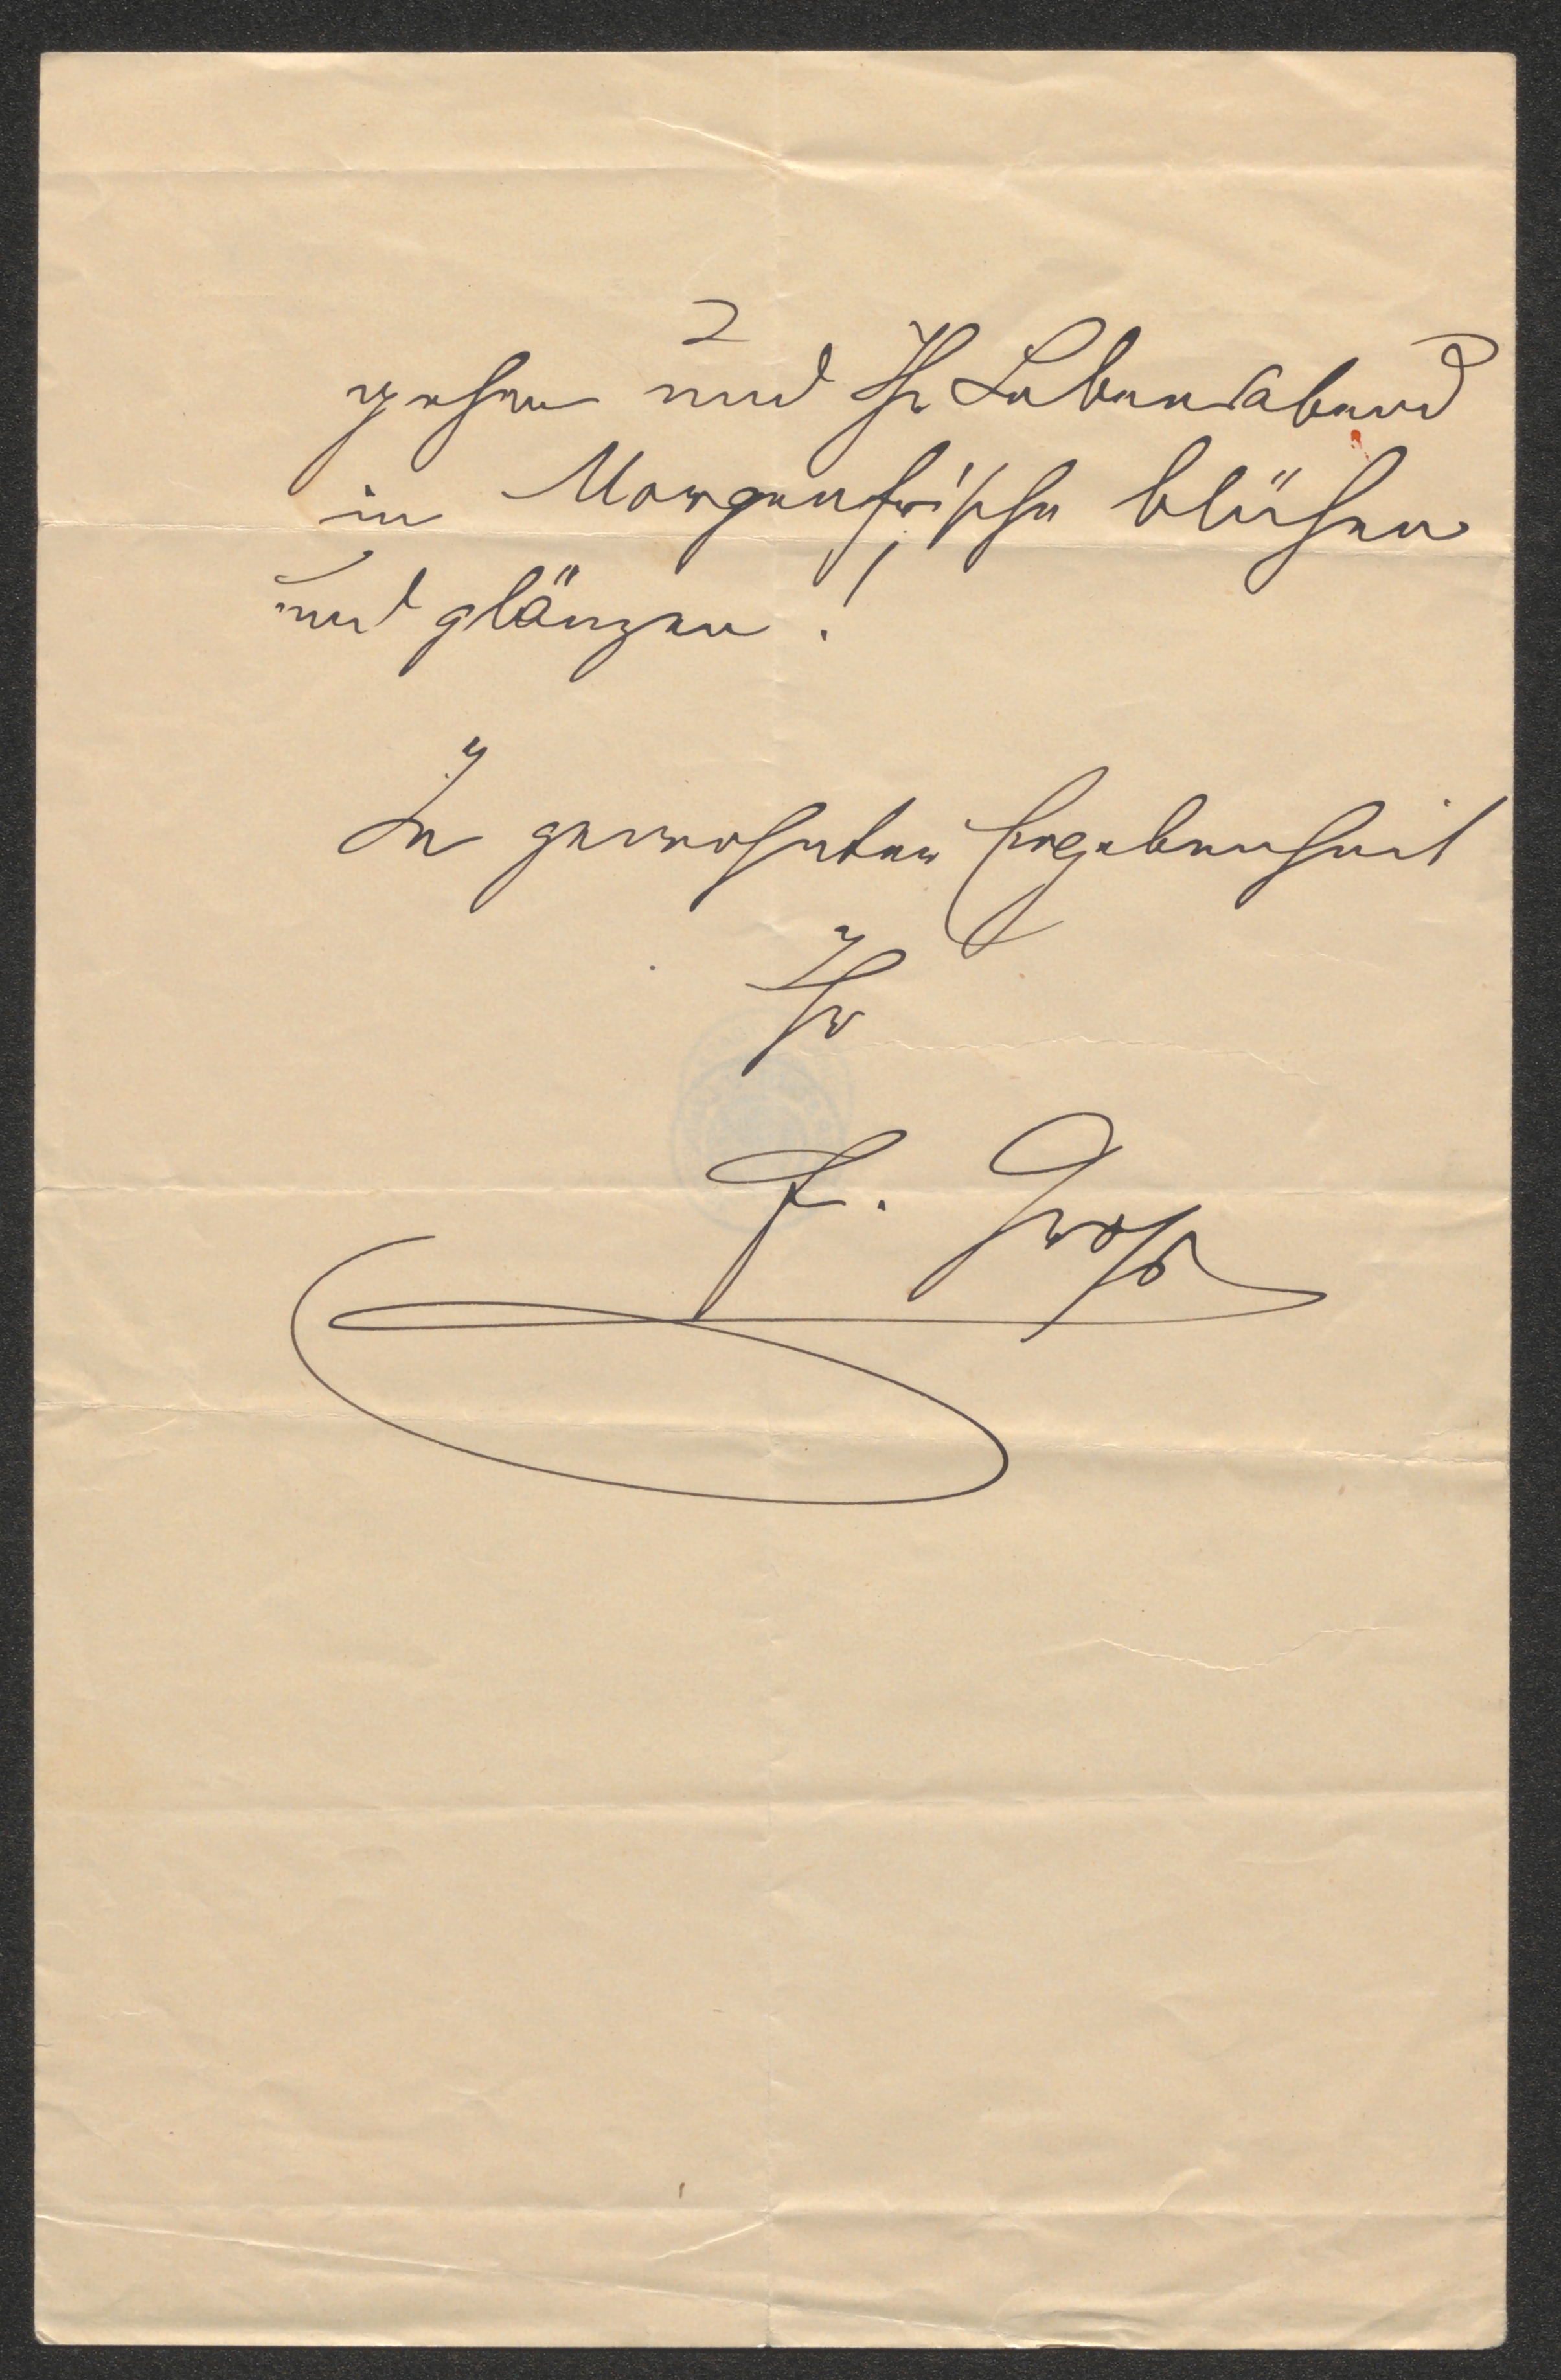 gehen und Ihr Lebensabend
in Morgenfrische blühen
und glänzen!
In gewohnter Ergebenheit
Ihr
F. Groß